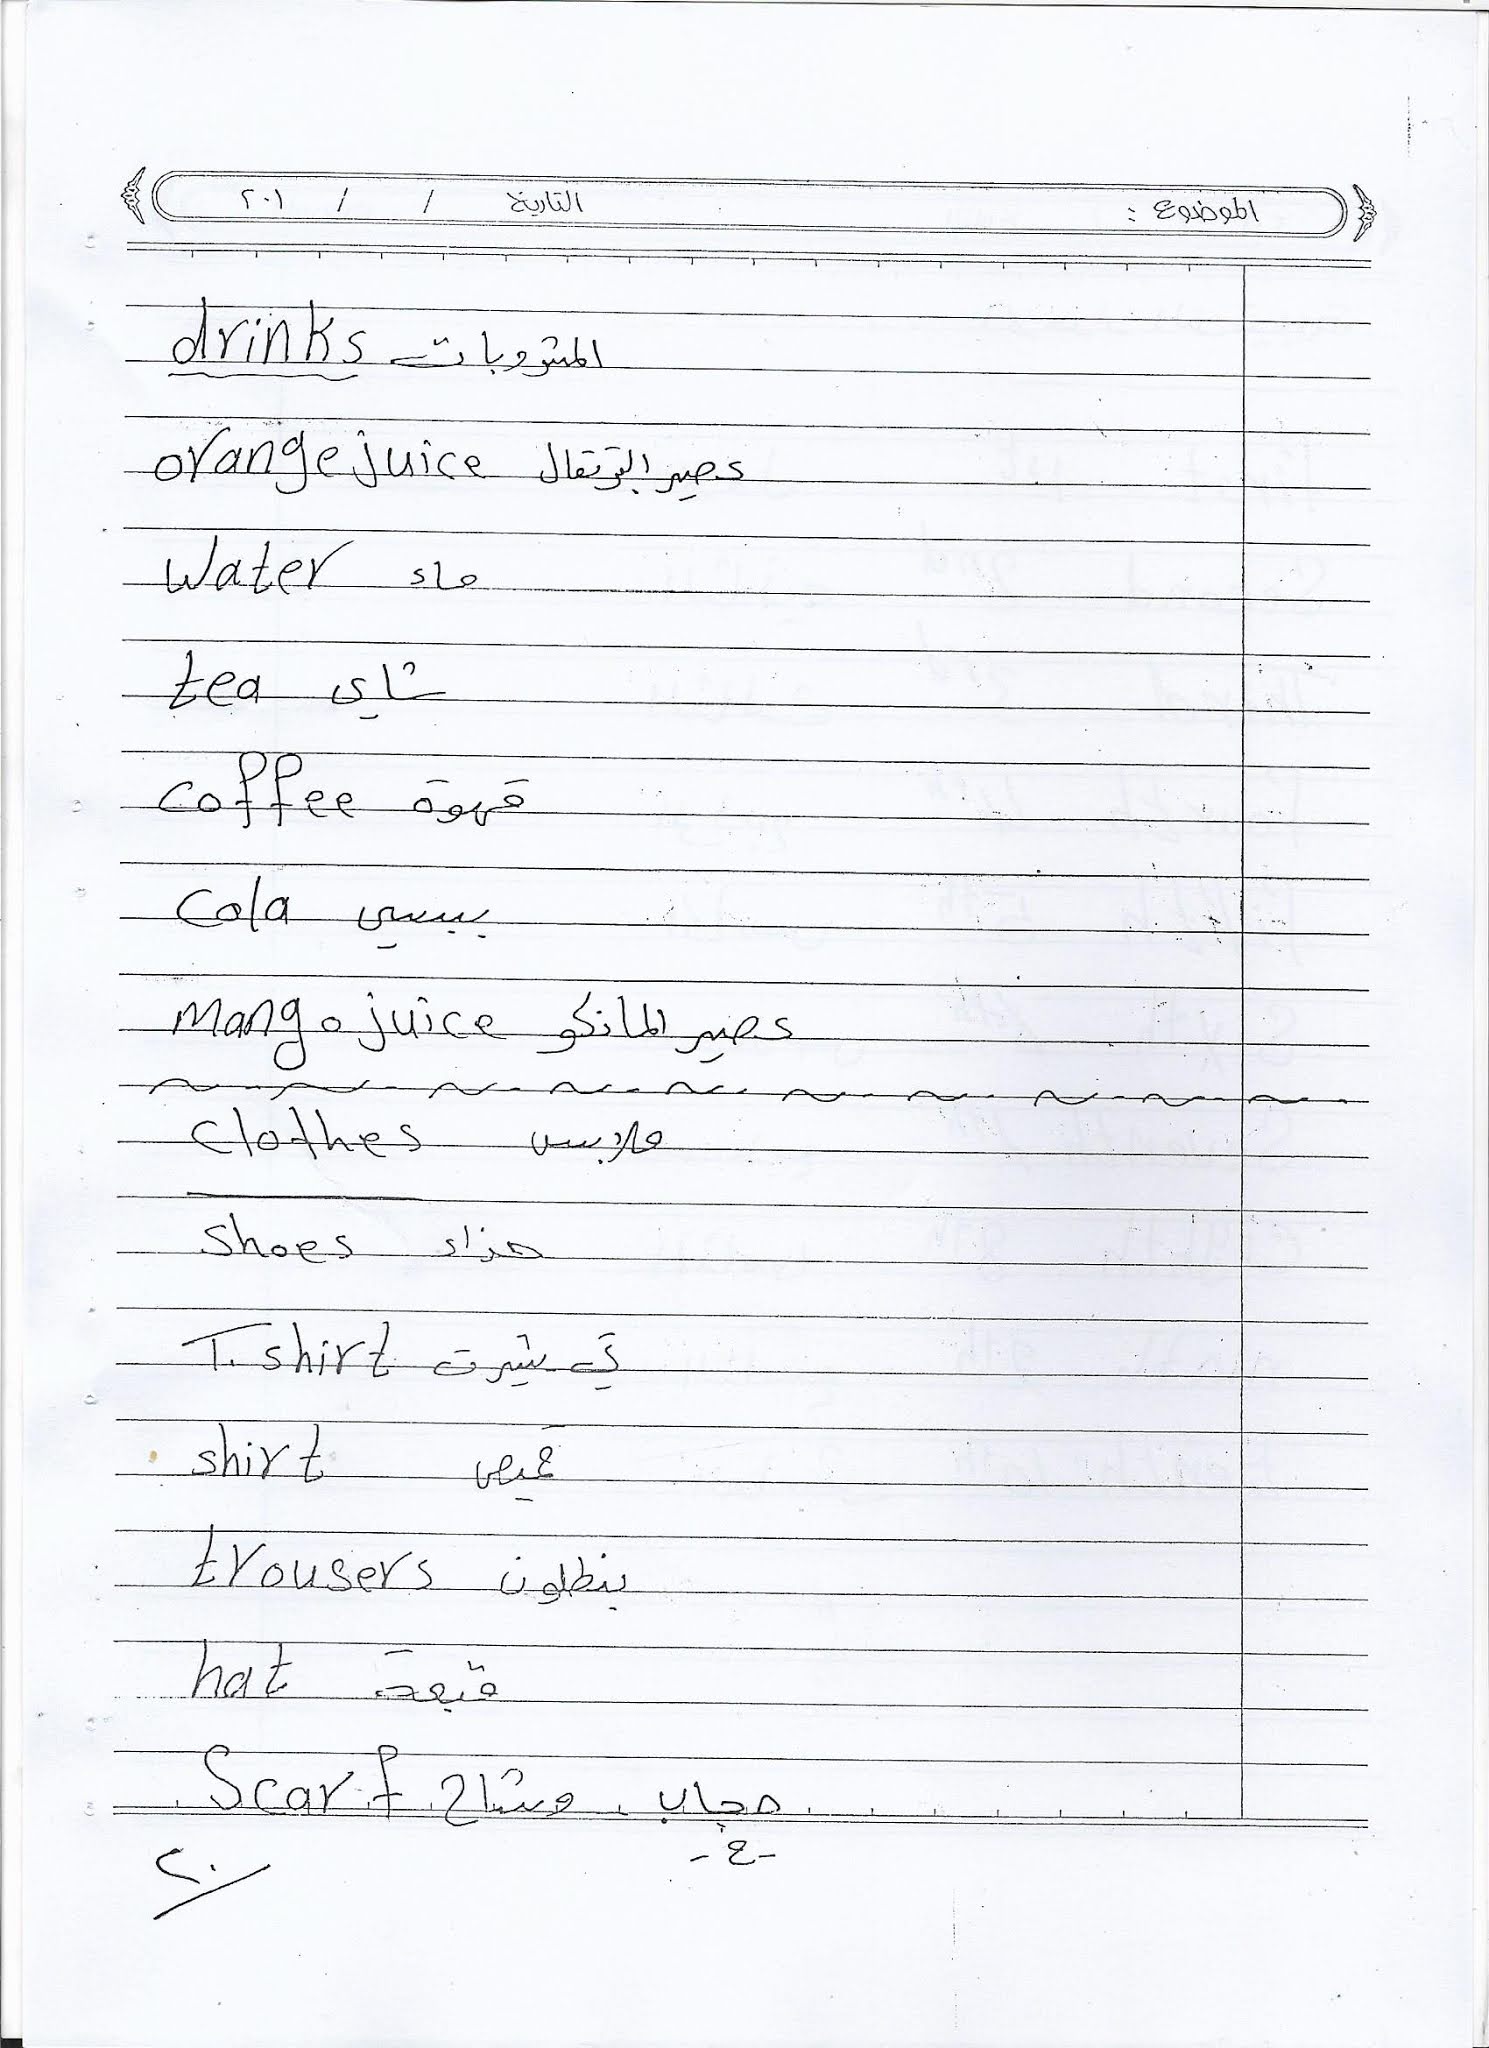 الموضوع : التاريخ / / ٢٠١
drinks المشروبات
orange juice عصير البرتقال
Water ماء
tea شاي
coffee قهوة
Cola ببسي
Mango juice عصير المانكو
Clothes ملابس
Shoes حذاء
T. shirt تي شيرت
shirt قميص
trousers بنطلون
hat قبعة
Scarf وشاح . حجاب
-٤-
٢٠